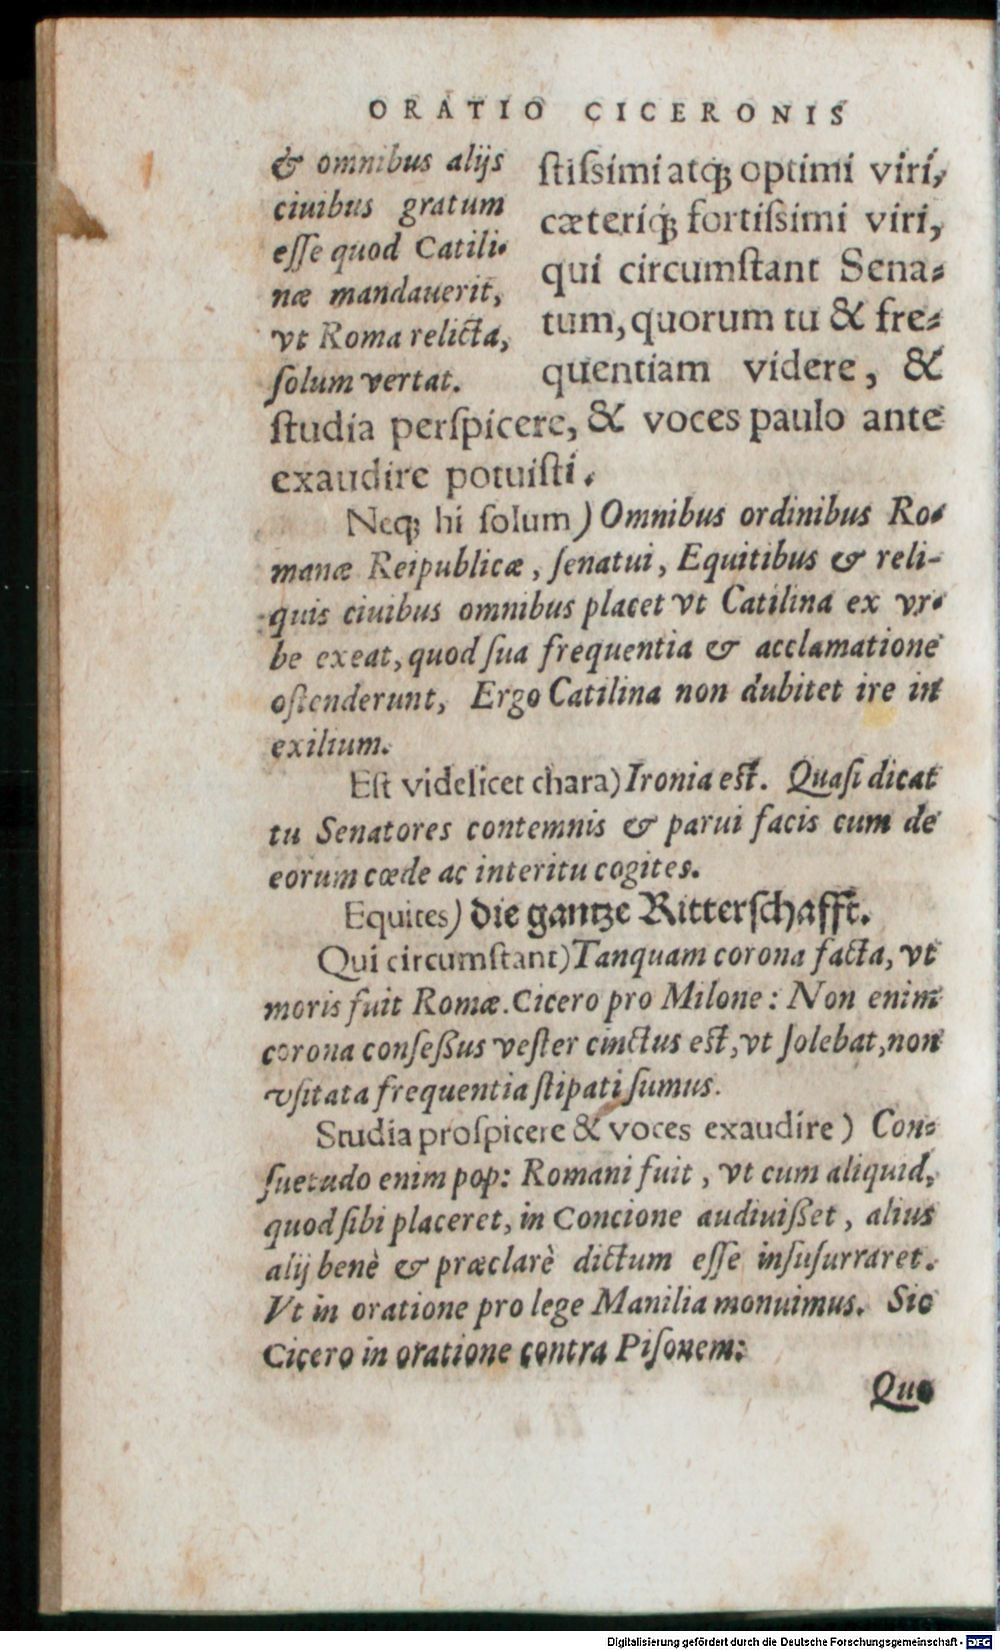 ORATIO CICERONIS
& omnibus alijs
ciuibus gratum
eſſe quod Catili-
næ mandauerit,
vt Roma relicta,
ſolum vertat.
ſtiſsimi atq́; optimi viri,
cæteriq́; fortiſsimi viri,
qui circumſtant Sena-
tum, quorum tu & fre-
quentiam videre, &
ſtudia perſpicere, & voces paulo ante
exaudire potuiſti.
Neq; hi ſolum) Omnibus ordinibus Ro-
manæ Reipublicæ, ſenatui, Equitibus & reli-
quis ciuibus omnibus placet vt Catilina ex vr-
be exeat, quod ſua frequentia & acclamatione
oſtenderunt, Ergo Catilina non dubitet ire in
exilium.
Eſt videlicet chara) Ironia eſt. Quaſi dicat
tu Senatores contemnis & parui facis cum de
eorum cœde ac interitu cogites.
Equites) die gantze Ritterſchafft.
Qui circumſtant) Tanquam corona facta, vt
moris fuit Romæ. Cicero pro Milone: Non enim
corona conſeßus veſter cinctus eſt, vt ſolebat, non
vſitata frequentia ſtipati ſumus.
Studia proſpicere & voces exaudire) Con-
ſuetudo enim pop: Romani fuit, vt cum aliquid,
quod ſibi placeret, in Concione audiuißet, alius
alij benè & præclarè dictum eſſe inſuſurraret.
Vt in oratione pro lege Manilia monuimus. Sic
Cicero in oratione contra Piſonem:
Quo
Digitalisierung gefördert durch die Deutsche Forschungsgemeinschaft - DFG